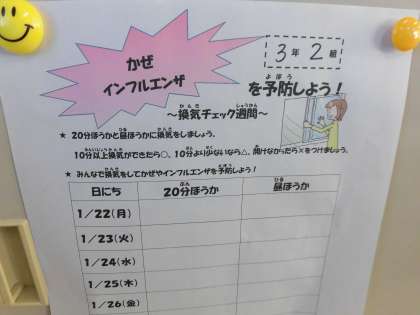 かぜ
インフルエンザ
3年2組
を予防しよう！
～換気チェック週間～
★ 20分ほうかと昼ほうかに換気をしましょう。
10分以上換気ができたら○、10分より少ないなら△、開けなかったら×をつけましょう。
★ みんなで換気をしてかぜやインフルエンザを予防しよう！
日にち 20分ほうか 昼ほうか
1/22(月)
1/23(火)
1/24(水)
1/25(木)
1/26(金)